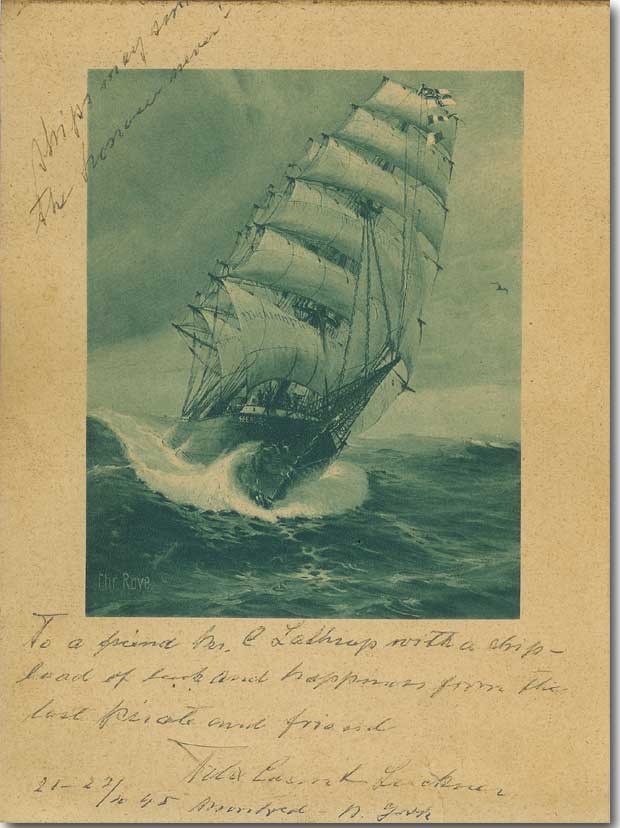 Ships may
the never!
Chr Rave
To a friend Mr. C Lathrop with a ship-
load of luck and happiness from the
last pirate and friend
Felix Count Luckner
Montreal - N. York